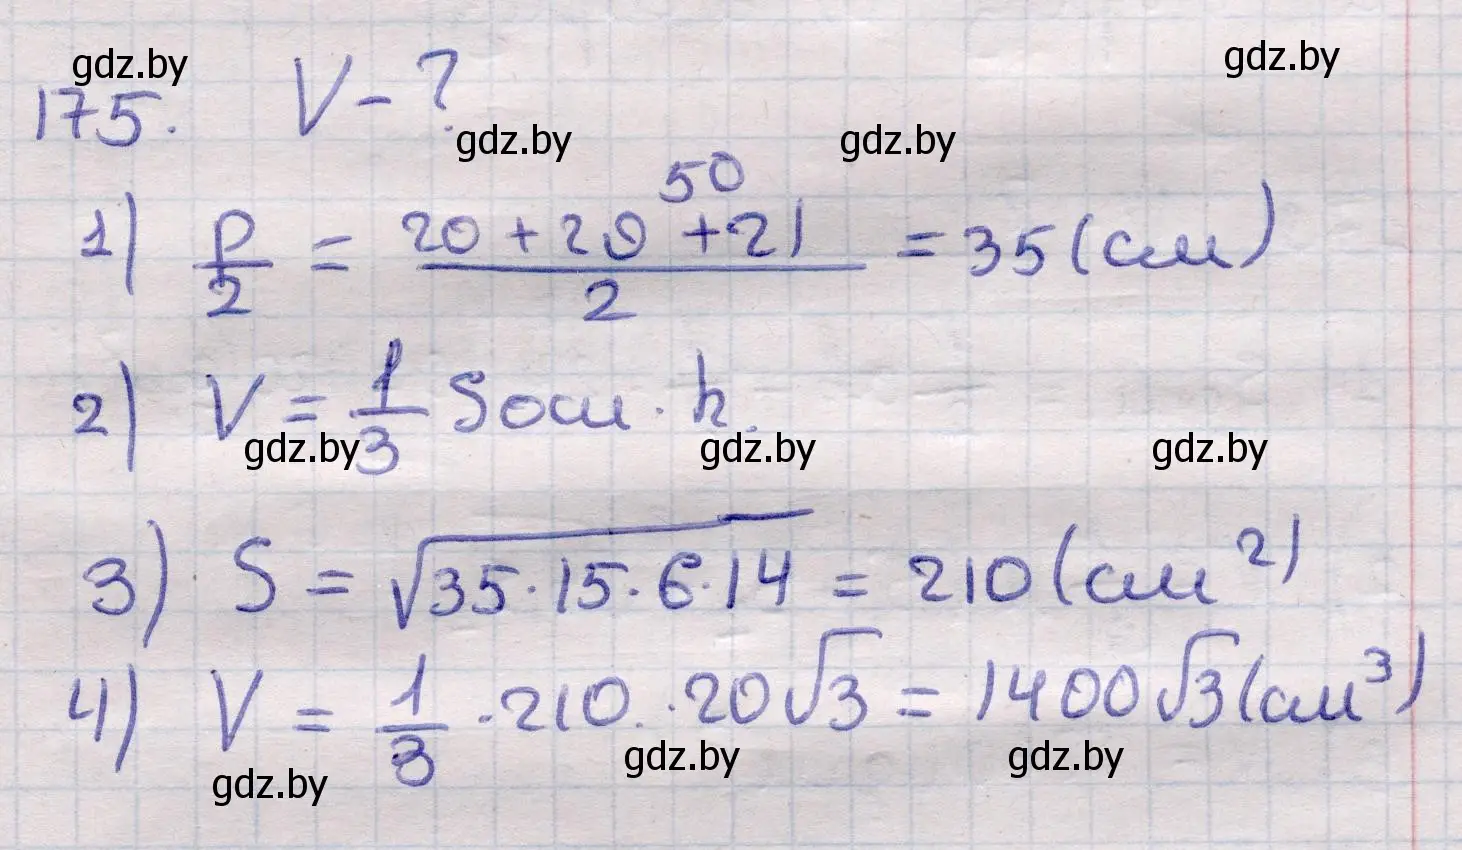 gdz.by gdz.by
175. V - ?
gdz.by gdz.by
50
1) p/2 = (20 + 29 + 21)/2 = 35 (см)
2) V = 1/3 Sосн · h.
gdz.by gdz.by gdz.by
3) S = √(35 · 15 · 6 · 14) = 210 (см²)
4) V = 1/3 · 210. · 20√3 = 1400√3 (см³)
gdz.by gdz.by gdz.by